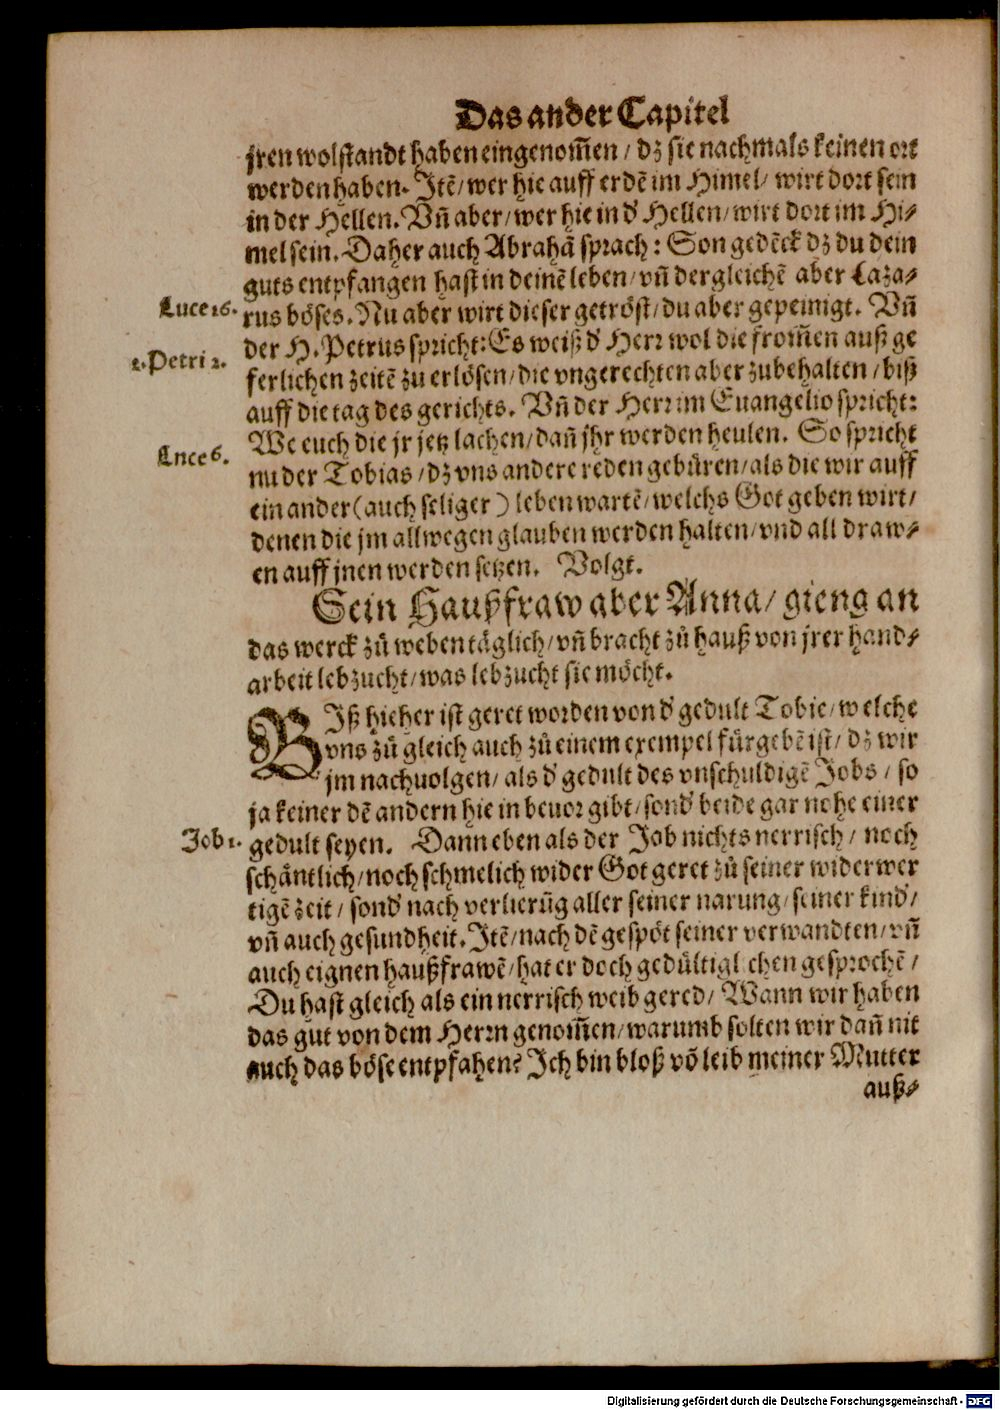 Das ander Capitel
jren wolstandt haben eingenom̃en / dz sie nachmals keinen ort
werden haben. Itẽ / wer hie auff erdẽ im Himel / wirt dort sein
in der Hellen. Vñ aber / wer hie in d' Hellen / wirt dort im Hi⸗
mel sein. Daher auch Abrahã sprach : Son gedẽck dz du dein
guts entpfangen hast in deinẽ leben / vñ dergleichẽ aber Laza⸗
Luce 16.
rus böses. Nu aber wirt dieser getröst / du aber gepeinigt. Vñ
der H. Petrus spricht: Es weiß d' Herr wol die from̃en auß ge
2. Petri 2.
ferlichen zeitẽ zu erlösen / die vngerechten aber zubehalten / biß
auff die tag des gerichts. Vñ der Herr im Euangelio spricht:
We euch die jr jetz lachen / dañ jhr werden heulen. So spricht
Lnce 6.
nu der Tobias / dz vns andere reden gebüren / als die wir auff
ein ander (auch seliger) leben wartẽ / welchs Got geben wirt /
denen die jm allwegen glauben werden halten / vnd all draw⸗
en auff jnen werden setzen. Volgt.
Sein Haußfraw aber Anna / gieng an
das werck zů weben täglich / vñ bracht zů hauß von jrer hand⸗
arbeit lebzucht / was lebzucht sie möcht.
BIß hieher ist geret worden von d' gedult Tobie / welche
vns zů gleich auch zů einem exempel fürgebẽ ist / dz wir
jm nachuolgen / als d' gedult des vnschuldigẽ Jobs / so
ja keiner dẽ andern hie in beuor gibt / sond' beide gar nohe einer
Job 1.
gedult seyen. Dann eben als der Job nichts nerrisch / noch
schäntlich / noch schmelich wider Got geret zů seiner widerwer
tigẽ zeit / sond' nach verlierũg aller seiner narung / seiner kind' /
vñ auch gesundheit. Itẽ / nach dẽ gespöt seiner verwandten / vñ
auch eignen haußfrawẽ / hat er doch gedültiglichen gesprochẽ /
Du hast gleich als ein nerrisch weib gered / Wann wir haben
das gut von dem Herrn genom̃en / warumb solten wir dañ nit
auch das böse entpfahen? Ich bin bloß võ leib meiner Mutter
auß⸗
Digitalisierung gefördert durch die Deutsche Forschungsgemeinschaft - DFG